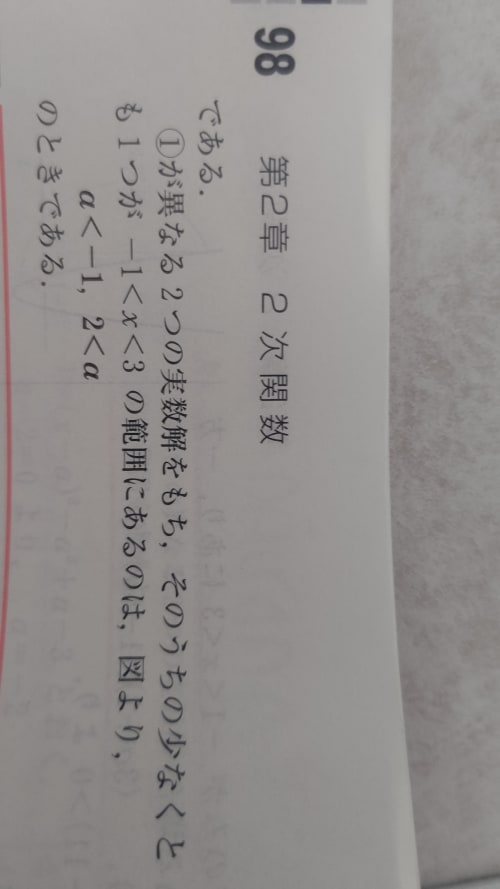 98 第2章 2次関数
である.
①が異なる2つの実数解をもち，そのうちの少なくと
も1つが −1<x<3 の範囲にあるのは，図より，
a<−1, 2<a
のときである.